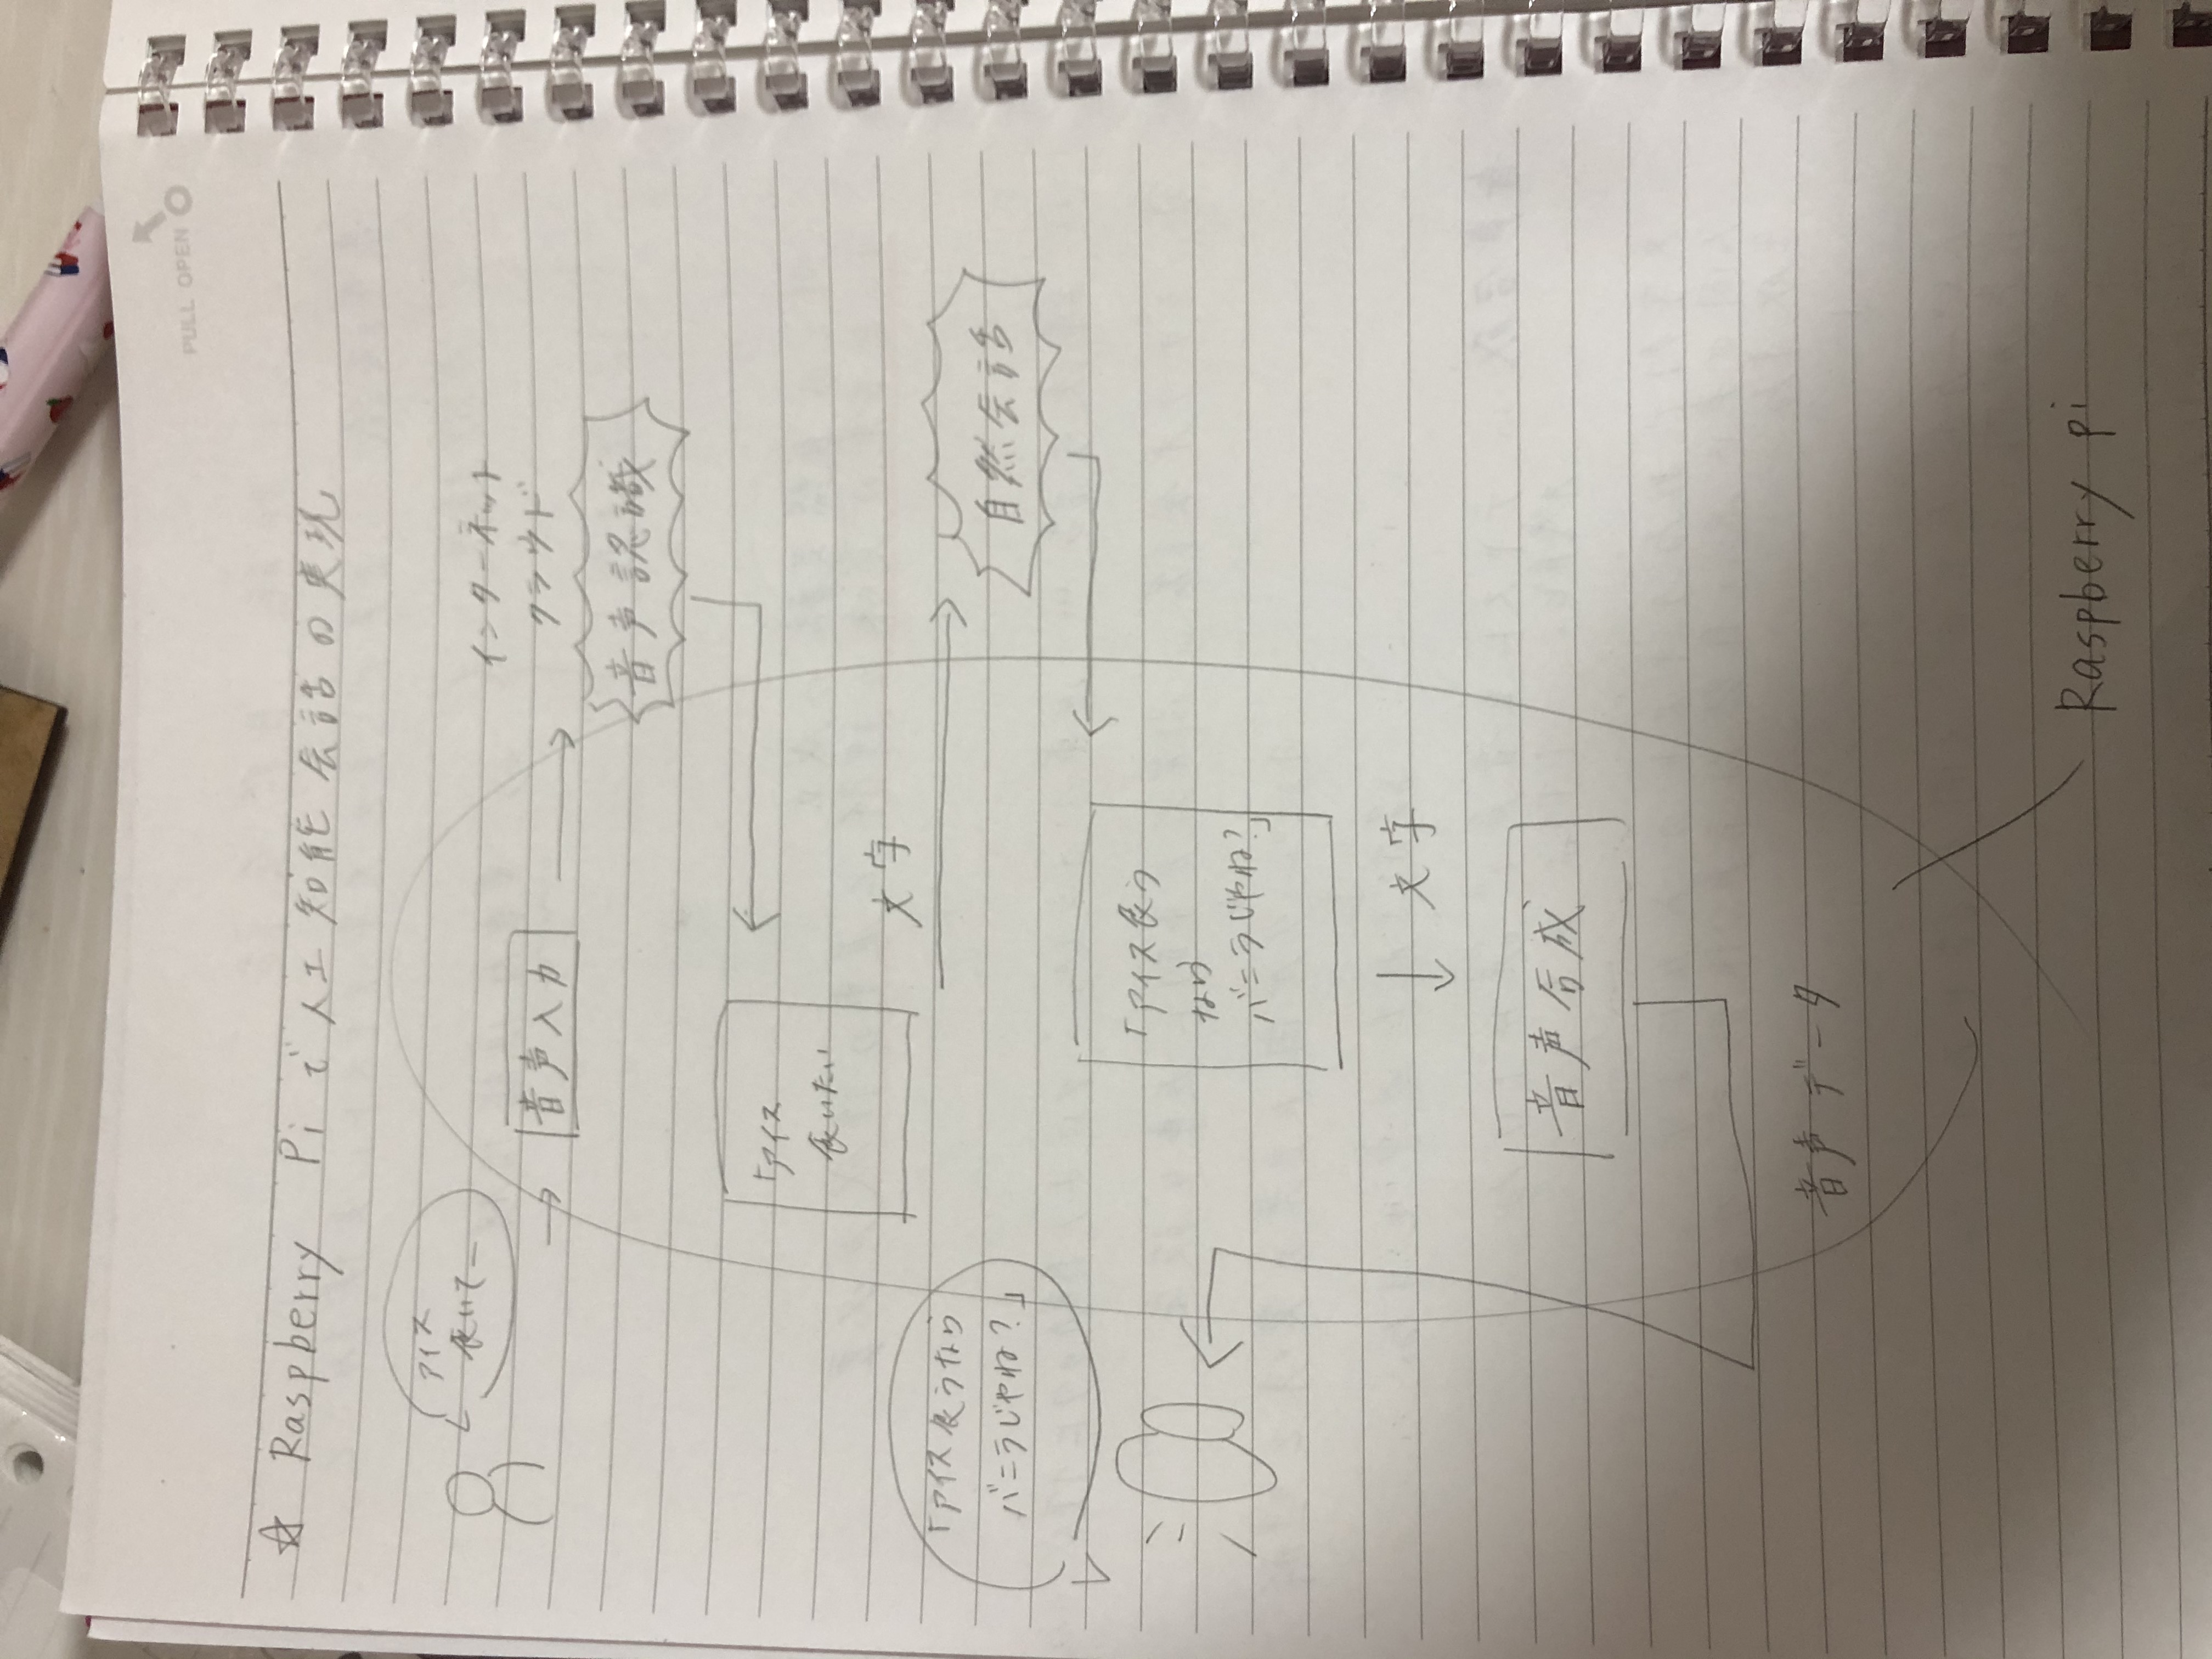 PULL OPEN
☆ Raspberry Piで人工知能会話の実現
アイス
食いてー
インターネット
クラウド
音声入力
音声認識
「アイス
食いたい
文字
「アイス食うなら
バニラじゃね?」
自然会話
「アイス食う
なら
バニラじゃね?」
文字
音声合成
音声データ
Raspberry pi